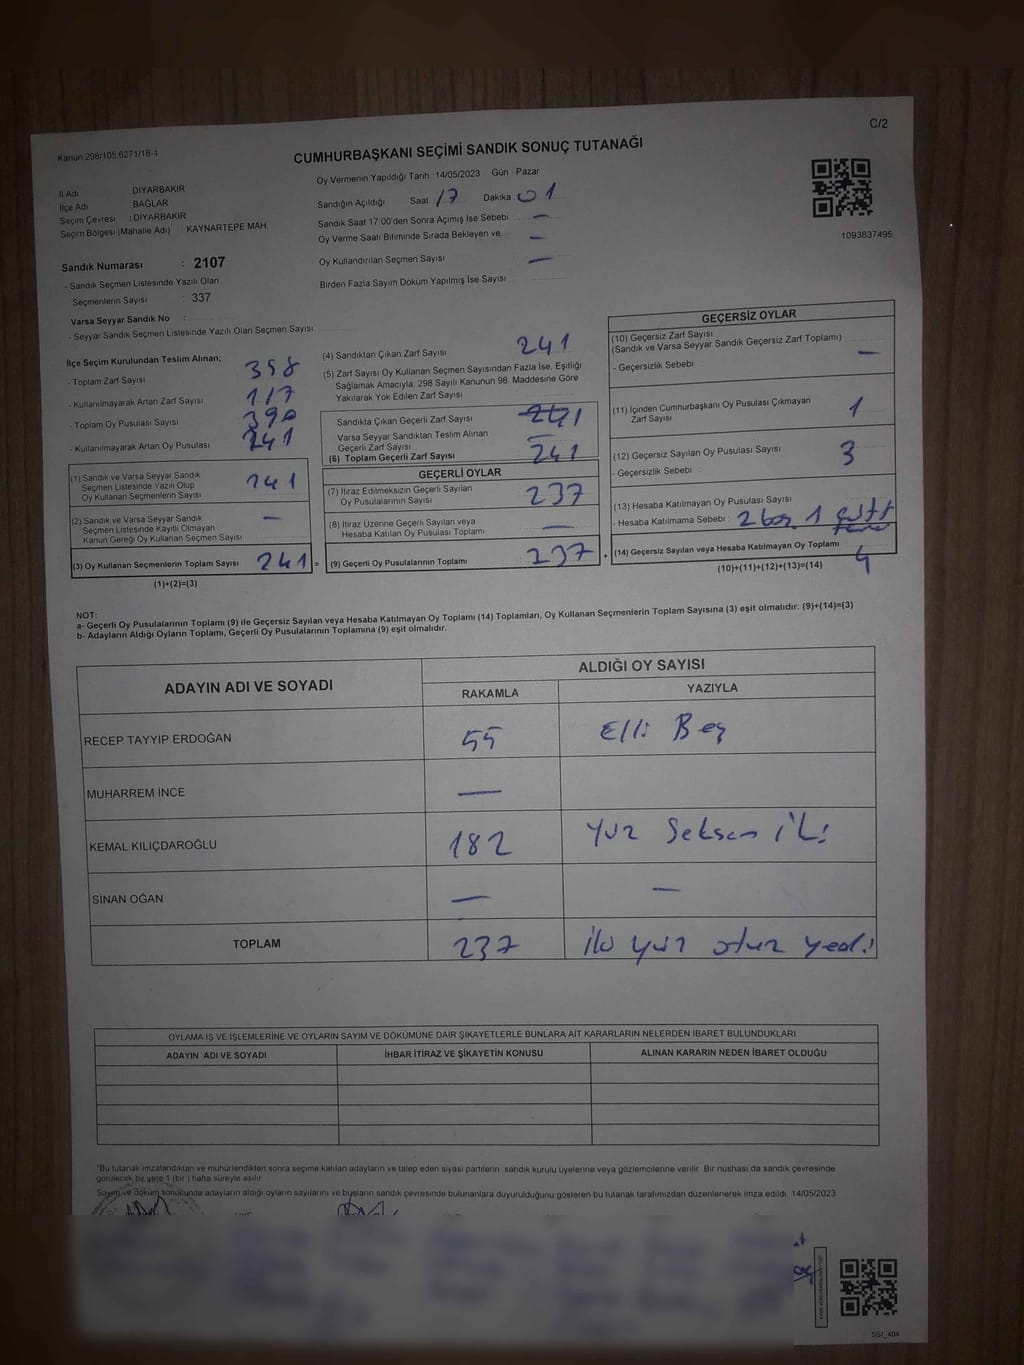 C/2
Kanun 298/105.6271/18-1
CUMHURBAŞKANI SEÇİMİ SANDIK SONUÇ TUTANAĞI
İl Adı DİYARBAKIR
İlçe Adı BAĞLAR
Seçim Çevresi : DİYARBAKIR
Seçim Bölgesi (Mahalle Adı) KAYNARTEPE MAH
Oy Vermenin Yapıldığı Tarih 14/05/2023 Gün : Pazar
Sandığın Açıldığı Saat 17 Dakika 01
Sandık Saat 17:00'den Sonra Açımış İse Sebebi : —
Oy Verme Saati Bitiminde Sırada Bekleyen ve —
Oy Kullandırılan Seçmen Sayısı —
Birden Fazla Sayım Döküm Yapılmış İse Sayısı
1093837495
Sandık Numarası : 2107
- Sandık Seçmen Listesinde Yazılı Olan
Seçmenlerin Sayısı : 337
Varsa Seyyar Sandık No :
- Seyyar Sandık Seçmen Listesinde Yazılı Olan Seçmen Sayısı
İlçe Seçim Kurulundan Teslim Alınan;
- Toplam Zarf Sayısı 358
- Kullanılmayarak Artan Zarf Sayısı 117
- Toplam Oy Pusulası Sayısı 390
- Kullanılmayarak Artan Oy Pusulası 241
(1) Sandık ve Varsa Seyyar Sandık
Seçmen Listesinde Yazılı Olup
Oy Kullanan Seçmenlerin Sayısı 241
(2) Sandık ve Varsa Seyyar Sandık
Seçmen Listesinde Kayıtlı Olmayan
Kanun Gereği Oy Kullanan Seçmen Sayısı —
(3) Oy Kullanan Seçmenlerin Toplam Sayısı 241 =
(1)+(2)=(3)
(4) Sandıktan Çıkan Zarf Sayısı 241
(5) Zarf Sayısı Oy Kullanan Seçmen Sayısından Fazla İse, Eşitliği
Sağlamak Amacıyla, 298 Sayılı Kanunun 98. Maddesine Göre
Yakılarak Yok Edilen Zarf Sayısı
Sandıkta Çıkan Geçerli Zarf Sayısı 241
Varsa Seyyar Sandıktan Teslim Alınan
Geçerli Zarf Sayısı —
(6) Toplam Geçerli Zarf Sayısı 241
GEÇERLİ OYLAR
(7) İtiraz Edilmeksizin Geçerli Sayılan
Oy Pusulalarının Sayısı 237
(8) İtiraz Üzerine Geçerli Sayılan veya
Hesaba Katılan Oy Pusulası Toplamı —
(9) Geçerli Oy Pusulalarının Toplamı 237 +
GEÇERSİZ OYLAR
(10) Geçersiz Zarf Sayısı
(Sandık ve Varsa Seyyar Sandık Geçersiz Zarf Toplamı) —
- Geçersizlik Sebebi
(11) İçinden Cumhurbaşkanı Oy Pusulası Çıkmayan
Zarf Sayısı 1
(12) Geçersiz Sayılan Oy Pusulası Sayısı 3
- Geçersizlik Sebebi :
(13) Hesaba Katılmayan Oy Pusulası Sayısı
- Hesaba Katılmama Sebebi 2 boş 1 çift
(14) Geçersiz Sayılan veya Hesaba Katılmayan Oy Toplamı 4
(10)+(11)+(12)+(13)=(14)
NOT:
a- Geçerli Oy Pusulalarının Toplamı (9) ile Geçersiz Sayılan veya Hesaba Katılmayan Oy Toplamı (14) Toplamları, Oy Kullanan Seçmenlerin Toplam Sayısına (3) eşit olmalıdır. (9)+(14)=(3)
b- Adayların Aldığı Oyların Toplamı, Geçerli Oy Pusulalarının Toplamına (9) eşit olmalıdır.
ADAYIN ADI VE SOYADI ALDIĞI OY SAYISI
RAKAMLA YAZIYLA
RECEP TAYYIP ERDOĞAN 55 Elli Beş
MUHARREM İNCE —
KEMAL KILIÇDAROĞLU 182 Yüz Seksen iki
SİNAN OĞAN — —
TOPLAM 237 iki yüz otuz yedi
OYLAMA İŞ VE İŞLEMLERİNE VE OYLARIN SAYIM VE DÖKÜMÜNE DAİR ŞİKAYETLERLE BUNLARA AİT KARARLARIN NELERDEN İBARET BULUNDUKLARI
ADAYIN ADI VE SOYADI İHBAR İTİRAZ VE ŞİKAYETİN KONUSU ALINAN KARARIN NEDEN İBARET OLDUĞU
*Bu tutanak imzalandıktan ve mühürlendikten sonra seçime katılan adayların ve talep eden siyasi partilerin sandık kurulu üyelerine veya gözlemcilerine verilir. Bir nüshası da sandık çevresinde
görülecek bir yere 1 (bir ) hafta süreyle asılır.
Sayım ve döküm sonucunda adayların aldığı oyların sayılarını ve bunların sandık çevresinde bulunanlara duyurulduğunu gösteren bu tutanak tarafımızdan düzenlenerek imza edildi. 14/05/2023
SSİ_404